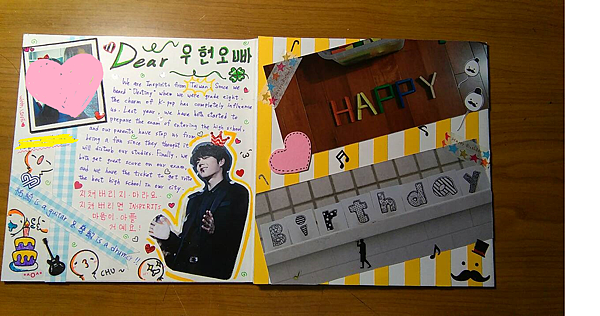 Dear 우현오빠
We are inspirits from Taiwan. Since we
heard "Destiny" when we were grade eight,
the charm of K-pop has completely influence
us. Last year, we have both started to
prepare the exam of entering the high school,
and our parents have stop us from
being a fan since they thought it
will disturb our studies. Finally, we
both get great score on our exam
and we have the ticket to get into
the best high school in our city.
지쳐 버리 지 마라요
지쳐 버리면 INSPIRITs
마음이 아플
거 예요!
is a guitar & is a drums!!
CHU~
HAPPY
Birthday